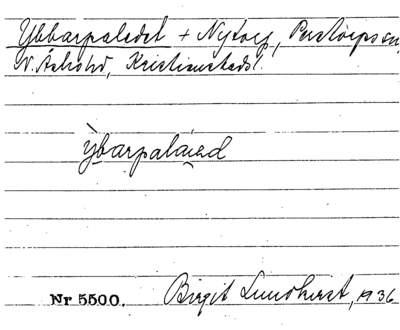 Ybbarpaledet + Nytorp, Perstorps sn,
N. Åsbo hd, Kristianstads l.
ỳbarpalàıed
Nr 5500.
Birgit Lundkvist, 1936